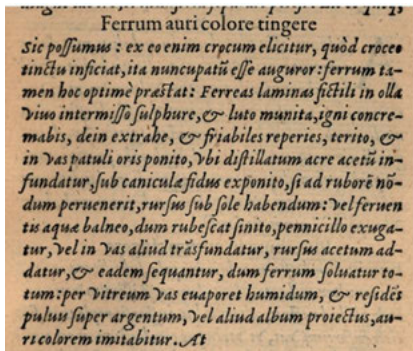 Ferrum auri colore tingere
Sic possumus : ex eo enim crocum elicitur, quòd croceo
tinctu inficiat, ita nuncupatũ esse auguror: ferrum ta-
men hoc optimè præstat : Ferreas laminas fictili in olla
viuo intermisso sulphure, & luto munita, igni concre-
mabis, dein extrahe, & friabiles reperies, terito, &
in vas patuli oris ponito, vbi distillatum acre acetũ in-
fundatur, sub caniculæ sidus exponito, si ad ruborẽ nõ-
dum peruenerit, rursus sub sole habendum: vel feruen
tis aquæ balneo, dum rubescat sinito, pennicillo exuga-
tur, vel in vas aliud trãsfundatur, rursus acetum ad-
datur, & eadem sequantur, dum ferrum soluatur to-
tum: per vitreum vas euaporet humidum, & residẽs
puluis super argentum, vel aliud album proiectus, au-
ri colorem imitabitur. At